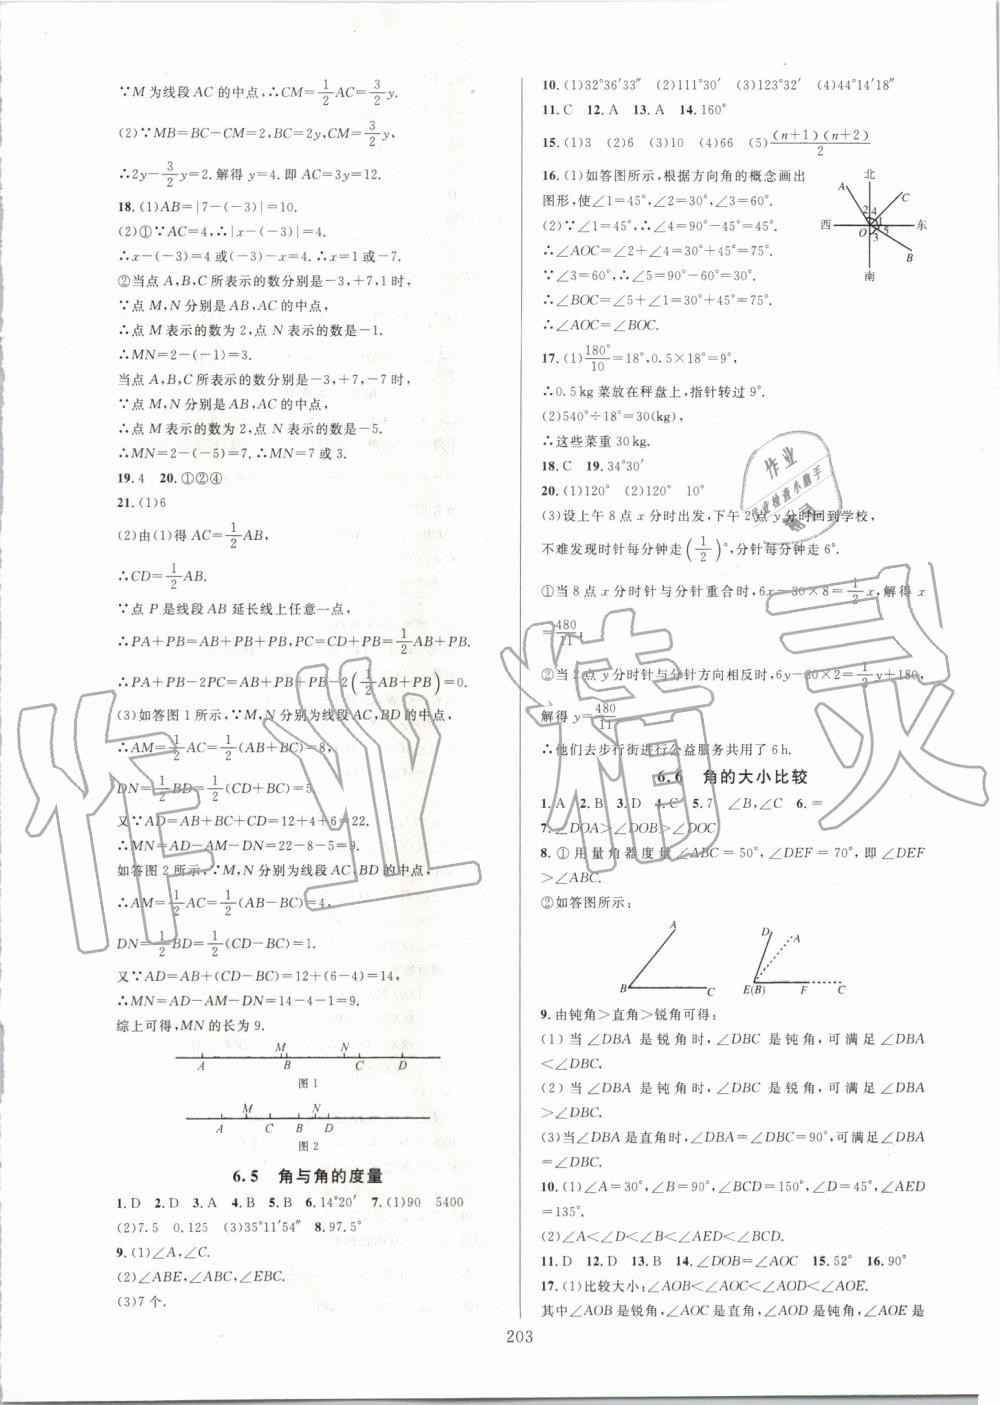 ∵M为线段AC的中点,∴CM=1/2AC=3/2y.
(2)∵MB=BC-CM=2,BC=2y,CM=3/2y,
∴2y-3/2y=2.解得y=4.即AC=3y=12.
18.(1)AB=|7-(-3)|=10.
(2)①∵AC=4,∴|x-(-3)|=4.
∴x-(-3)=4或(-3)-x=4.∴x=1或-7.
②当点A,B,C所表示的数分别是-3,+7,1时,
∵点M,N分别是AB,AC的中点,
∴点M表示的数为2,点N表示的数是-1.
∴MN=2-(-1)=3.
当点A,B,C所表示的数分别是-3,+7,-7时,
∵点M,N分别是AB,AC的中点,
∴点M表示的数为2,点N表示的数是-5.
∴MN=2-(-5)=7.∴MN=7或3.
19.4 20.①②④
21.(1)6
(2)由(1)得AC=1/2AB,
∴CD=1/2AB.
∵点P是线段AB延长线上任意一点,
∴PA+PB=AB+PB+PB,PC=CD+PB=1/2AB+PB.
∴PA+PB-2PC=AB+PB+PB-2(1/2AB+PB)=0.
(3)如答图1所示,∵M,N分别为线段AC,BD的中点,
∴AM=1/2AC=1/2(AB+BC)=8,
DN=1/2BD=1/2(CD+BC)=5.
又∵AD=AB+BC+CD=12+4+6=22.
∴MN=AD-AM-DN=22-8-5=9.
如答图2所示,∵M,N分别为线段AC,BD的中点,
∴AM=1/2AC=1/2(AB-BC)=4,
DN=1/2BD=1/2(CD-BC)=1.
又∵AD=AB+(CD-BC)=12+(6-4)=14,
∴MN=AD-AM-DN=14-4-1=9.
综上可得,MN的长为9.
M N
A B C D
图1
M N
A C B D
图2
6.5 角与角的度量
1.D 2.D 3.A 4.B 5.B 6.14°20′ 7.(1)90 5400
(2)7.5 0.125 (3)35°11′54″ 8.97.5°
9.(1)∠A,∠C.
(2)∠ABE,∠ABC,∠EBC.
(3)7个.
10.(1)32°36′33″ (2)111°30′ (3)123°32′ (4)44°14′18″
11.C 12.A 13.A 14.160°
15.(1)3 (2)6 (3)10 (4)66 (5)(n+1)(n+2)/2
16.(1)如答图所示,根据方向角的概念画出
图形,使∠1=45°,∠2=30°,∠3=60°.
(2)∵∠1=45°,∴∠4=90°-45°=45°.
∴∠AOC=∠2+∠4=30°+45°=75°.
∵∠3=60°,∴∠5=90°-60°=30°.
∴∠BOC=∠5+∠1=30°+45°=75°.
∴∠AOC=∠BOC.
北
A C
2 4
1
西 东
O 3 5
B
南
17.(1)180°/10=18°,0.5×18°=9°,
∴0.5 kg菜放在秤盘上,指针转过9°.
(2)540°÷18°=30(kg),
∴这些菜重30 kg.
18.C 19.34°30′
20.(1)120° (2)120° 10°
(3)设上午8点x分时出发,下午2点y分时回到学校,
不难发现时针每分钟走(1/2)°,分针每分钟走6°.
①当8点x分时针与分针重合时,6x-30×8=1/2x,解得x
=480/11;
②当2点y分时针与分针方向相反时,6y-30×2=1/2y+180,
解得y=480/11
∴他们去步行街进行公益服务共用了6 h.
6.6 角的大小比较
1.A 2.B 3.D 4.C 5.7 ∠B,∠C 6.=
7.∠DOA>∠DOB>∠DOC
8.①用量角器度量∠ABC=50°,∠DEF=70°,即∠DEF
>∠ABC.
②如答图所示:
A D A
B C E(B) F C
9.由钝角>直角>锐角可得:
(1)当∠DBA是锐角时,∠DBC是钝角,可满足∠DBA
<∠DBC.
(2)当∠DBA是钝角时,∠DBC是锐角,可满足∠DBA
>∠DBC.
(3)当∠DBA是直角时,∠DBA=∠DBC=90°,可满足∠DBA
=∠DBC.
10.(1)∠A=30°,∠B=90°,∠BCD=150°,∠D=45°,∠AED
=135°.
(2)∠A<∠D<∠B<∠AED<∠BCD.
11.D 12.D 13.B 14.∠DOB=∠AOC 15.52° 16.90°
17.(1)比较大小:∠AOB<∠AOC<∠AOD<∠AOE.
其中∠AOB是锐角,∠AOC是直角,∠AOD是钝角,∠AOE是
203
作业
作业检查小助手
精灵
作业精灵